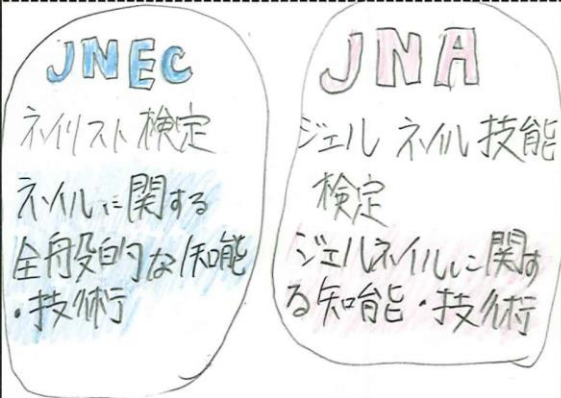 JNEC
ネイリスト検定
ネイルに関する
全般的な知能
・技術
JNA
ジェル ネイル 技能
検定
ジェルネイルに関す
る知能・技術